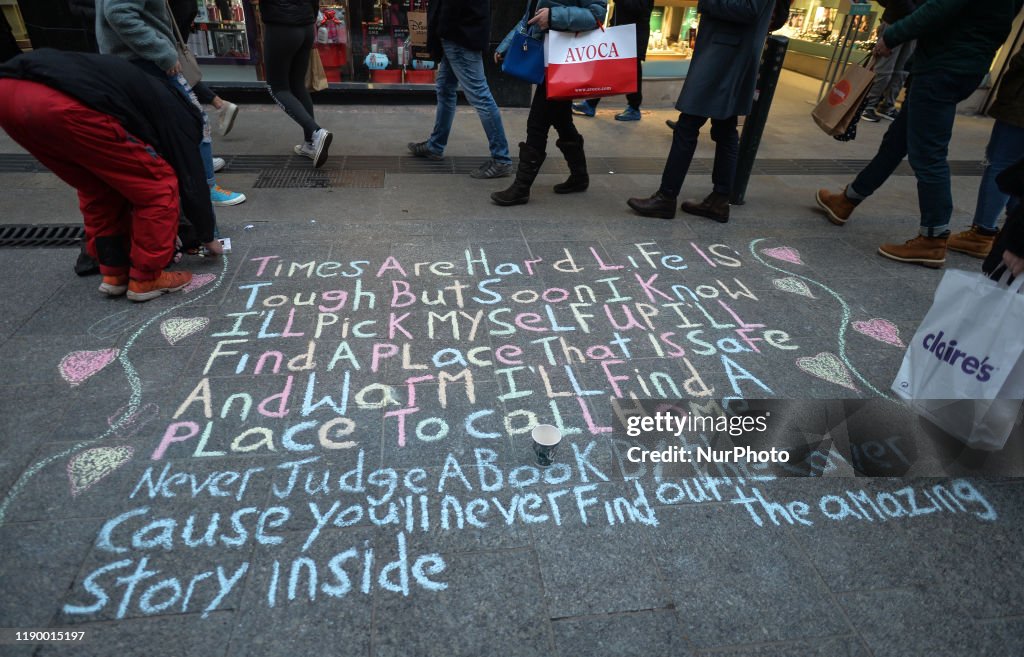 AVOCA
www.
Times Are Hard Life Is
Tough But Soon I Know
I'll Pick Myself Up Ill
Find A Place That Is Safe
And Warm I'll Find A
Place To Call Home
Never Judge A Book By The Cover
Cause you'll never Find out the amazing
Story inside
claire's
NurPhoto
Credit: NurPhoto
1190015197